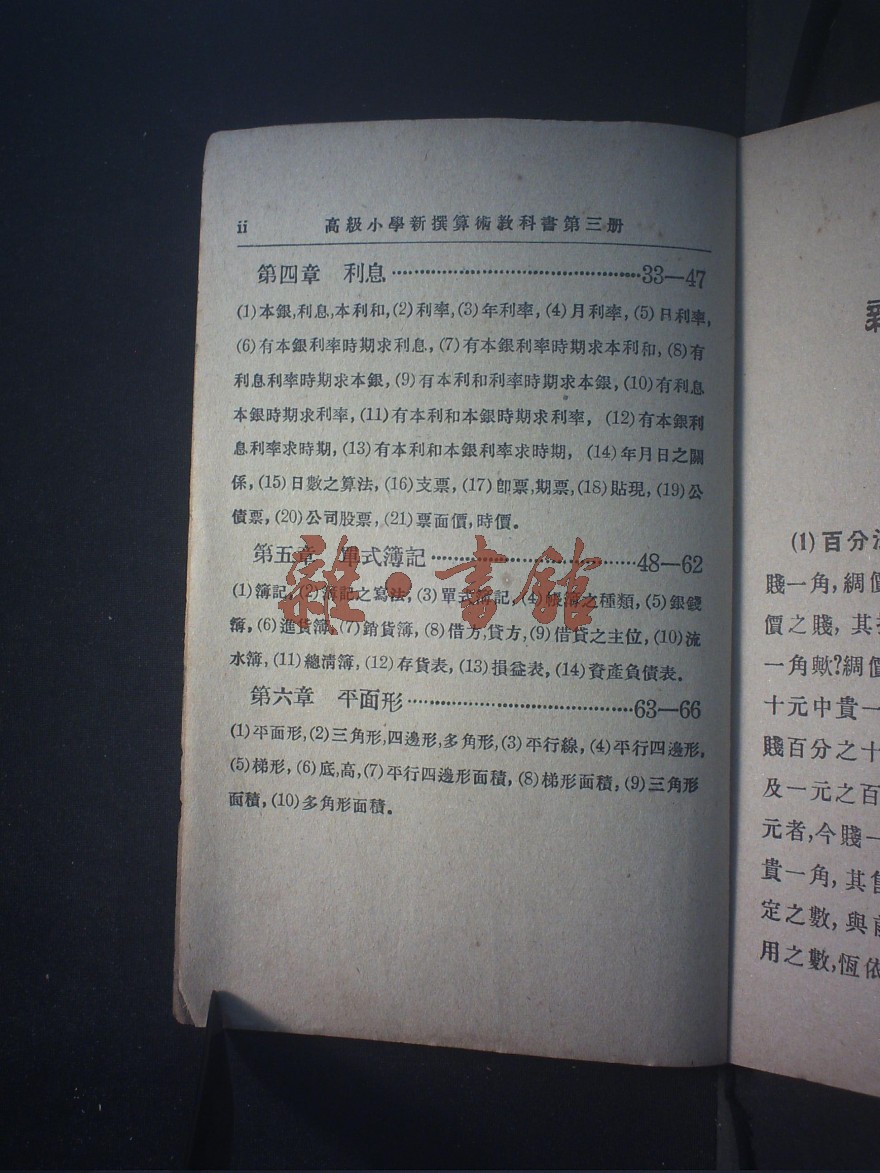 ii 高級小學新撰算術教科書第三册
第四章 利息……………………………………33—47
(1)本銀,利息,本利和,(2)利率,(3)年利率,(4)月利率,(5)日利率,
(6)有本銀利率時期求利息,(7)有本銀利率時期求本利和,(8)有
利息利率時期求本銀,(9)有本利和利率時期求本銀,(10)有利息
本銀時期求利率,(11)有本利和本銀時期求利率,(12)有本銀利
息利率求時期,(13)有本利和本銀利率求時期,(14)年月日之關
係,(15)日數之算法,(16)支票,(17)卽票,期票,(18)貼現,(19)公
債票,(20)公司股票,(21)票面價,時價。
第五章 單式簿記……………………………48—62
(1)簿記,(2)簿記之寫法,(3)單式簿記,(4)帳簿之種類,(5)銀錢
簿,(6)進貨簿,(7)銷貨簿,(8)借方,貸方,(9)借貸之主位,(10)流
水簿,(11)總淸簿,(12)存貨表,(13)損益表,(14)資產負債表。
第六章 平面形………………………………63—66
(1)平面形,(2)三角形,四邊形,多角形,(3)平行線,(4)平行四邊形,
(5)梯形,(6)底,高,(7)平行四邊形面積,(8)梯形面積,(9)三角形
面積,(10)多角形面積。
雜·書館
(1)百分
賤一角,綢價
價之賤,其
一角歟?綢價
十元中貴一
賤百分之十
及一元之百
元者,今賤一
貴一角,其
定之數,與
用之數,恆依